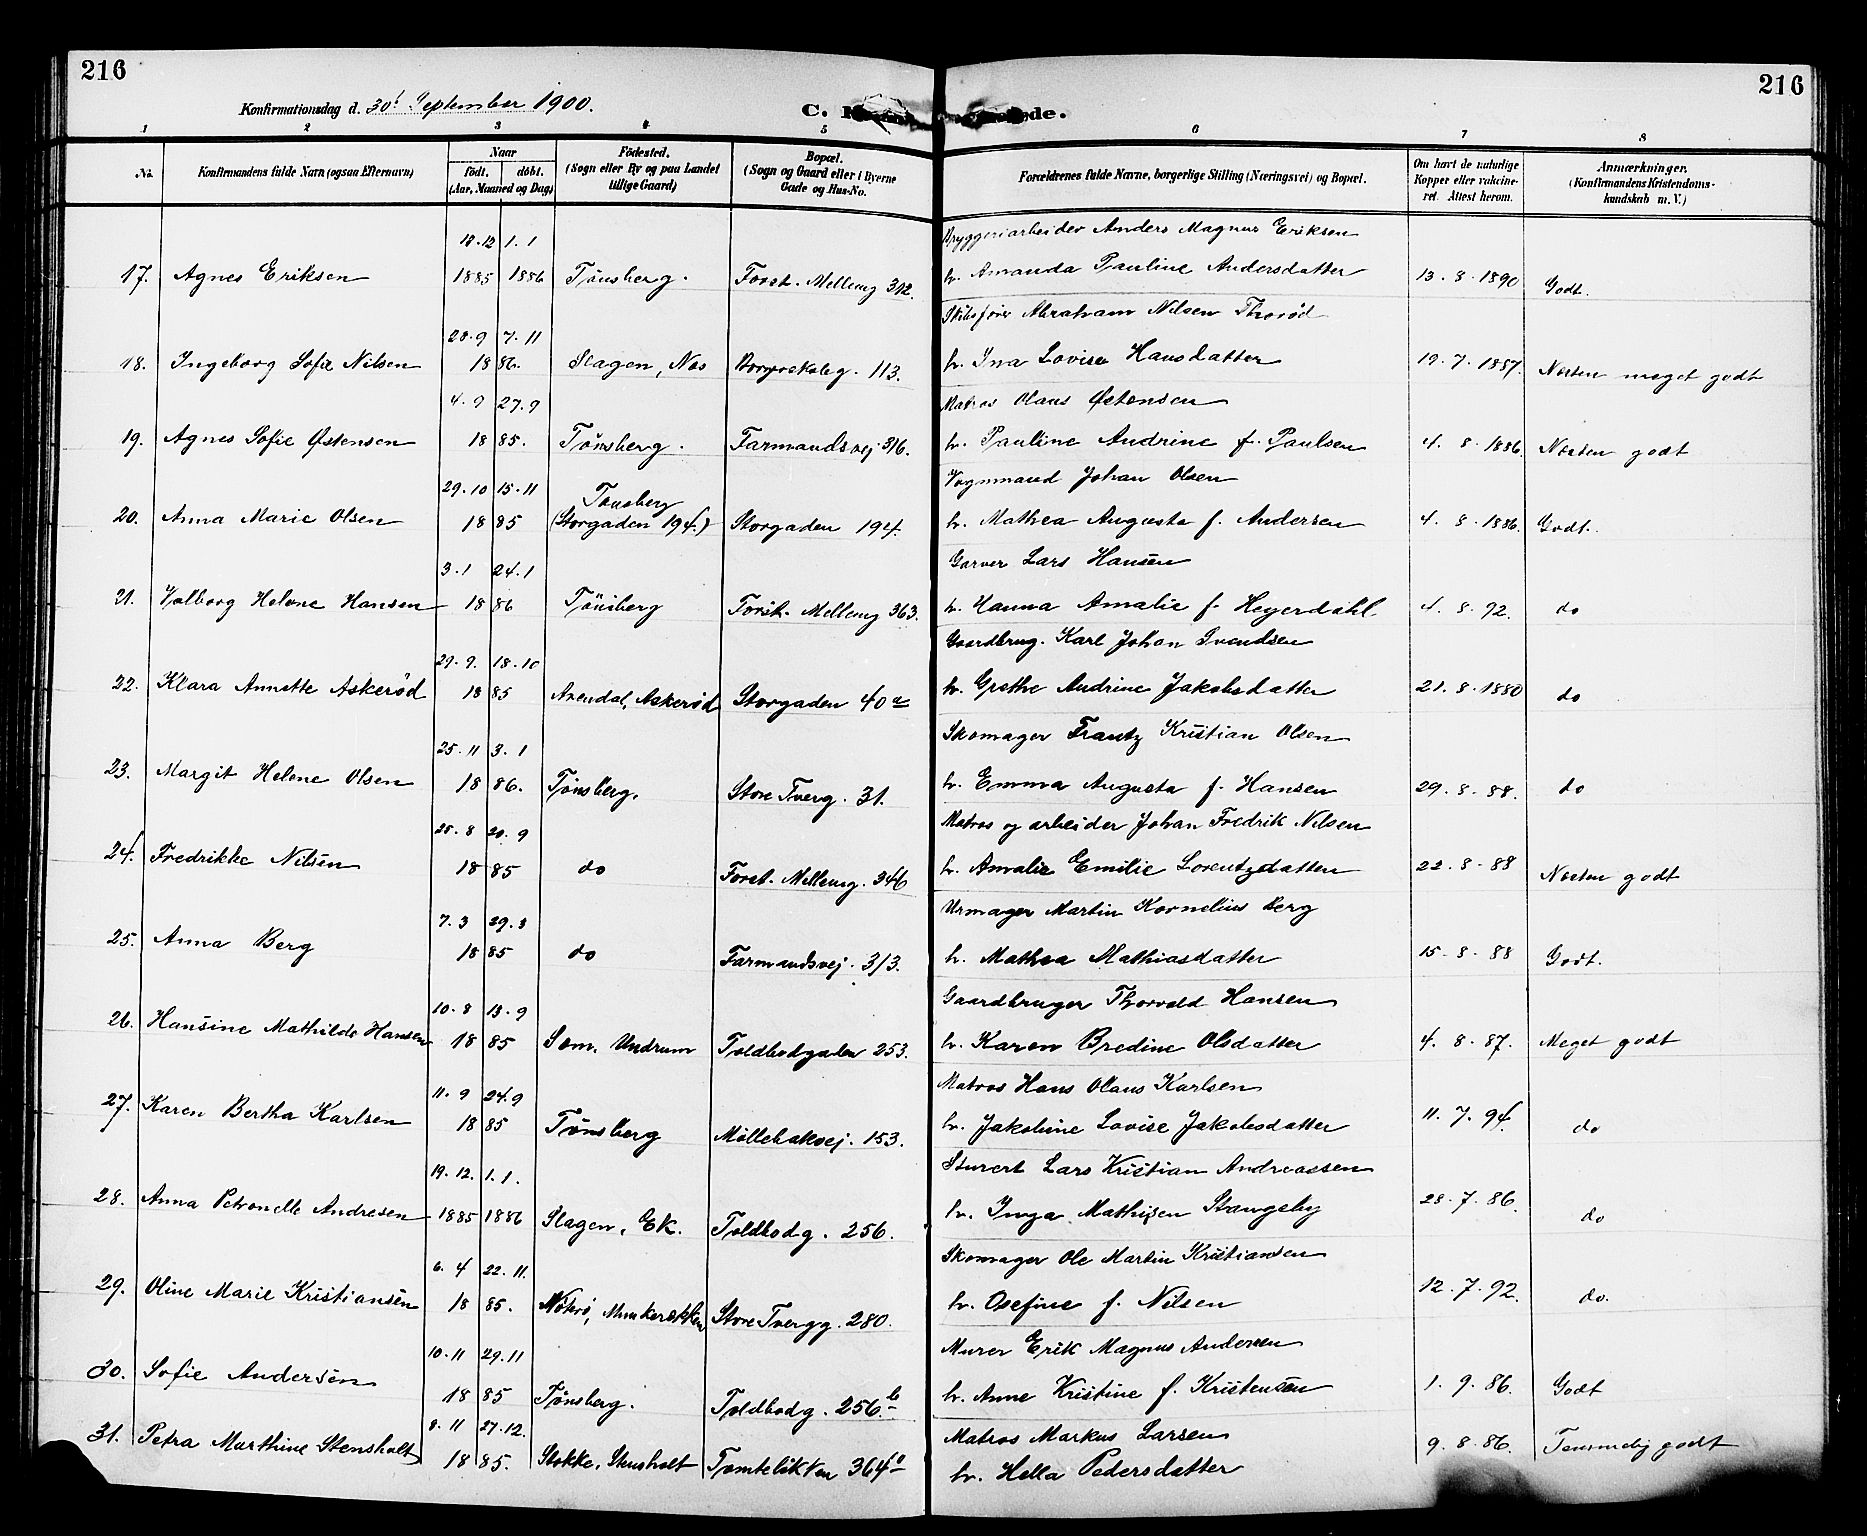 216
216
Konfirmationsdag d. 30t September 1900.
C. de.
1 2 3 4 5 6 7 8
No.
Konfirmandens fulde Navn (ogsaa Efternavn)
Naar
födt. döbt.
(Aar, Maaned og Dag)
Födested.
(Sogn eller By og paa Landet
tillige Gaard)
Bopæl.
(Sogn og Gaard eller i Byerne
Gade og Hus-No.
Forældrenes fulde Navne, borgerlige Stilling (Næringsvei) og Bopæl.
Om havt de naturlige
Kopper eller vakcine-
ret. Attest herom.
Anmærkninger.
(Konfirmandens Kristendoms-
kundskab m. V.)
18.12 1.1 Bryggeriarbeider Anders Magnus Eriksen
17. Agnes Eriksen 1885 1886 Tönsberg. Forst. Mellemg 312. h. Amanda Pauline Andersdatter 13.8.1890 Godt.
28.9 7.11 Skibsfører Abraham Nilsen Thorød
18. Ingeborg Sofie Nilsen 18 86. Slagen, Næs 113. h. Ina Lovise Hansdatter 19.7.1887. Næsten meget godt
4.9 27.9 Matros Olaus Østensen
19. Agnes Sofie Østensen 18 85. Tönsberg. Farmandsvej 316. h. Pauline Andrine f. Paulsen 4.8.1886. Næsten godt
29.10 15.11 Tønsberg Vognmand Johan Olsen
20. Anna Marie Olsen 18 85 (Storgaden 194.) Storgaden 194. h. Mathea Augusta f. Andersen 4.8.1886. Godt.
3.1 24.1 Garver Lars Hansen
21. Valborg Helene Hansen 18 86 Tönsberg Forst. Mellemg 363. h. Hanna Amalie f. Heyerdahl 4.8.92. do
29.9. 18.10 Gaardbrug. Karl Johan Svendsen
22. Klara Annette Askerød 18 85 Arendal, Askerød Storgaden 40 a h. Grethe Andrine Jakobsdatter 21.8.1880 do
25.11 3.1 Skomager Frantz Kristian Olsen
23. Margit Helene Olsen 18 86. Tønsberg. Store Tverg. 31. h. Emma Augusta f. Hansen 29.8.88. do
25.8 20.9 Matros og arbeider Johan Fredrik Nilsen
24. Fredrikke Nilsen 18 85 do Forst. Mellemg. 346 h. Amalie Emilie Lorentzdatter 22.8.88 Næsten godt
7.3 29.3 Urmager Martin Kornelius Berg
25. Anna Berg 18 85 do Farmandsvej. 313. h. Mathea Mathiasdatter 15.8.88 Godt.
10.8 13.9 Gaardbruger Thorvald Hansen
26. Hansine Mathilde Hansen 18 85 Sem, Undrum Toldbodgaden 253. h. Karen Bredine Olsdatter 4.8.87. Meget godt
11.9 24.9 Matros Hans Olaus Karlsen
27. Karen Bertha Karlsen 18 85 Tönsberg Møllebakvej. 153. h. Jakobine Lovise Jakobsdatter 11.7.94. do
19.12. 1.1. Stuert Lars Kristian Andreassen
28. Anna Petronelle Andresen 1885 1886 Slagen, Ek. Toldbodg. 256. h. Inga Mathisen Stangeby 28.7.86. do
6.4 22.11. Skomager Ole Martin Kristiansen
29. Oline Marie Kristiansen 18 85. Nøtterø, Munkerekken Store Tvergg. 280. h. Osefine f. Nilsen 12.7.92. do.
10.11 29.11 Murer Erik Magnus Andersen
30. Sofie Andersen 18 85 Tønsberg. Toldbodg. 256.b h. Anne Kristine f. Kristensen 1.9.86. Godt
8.11 27.12. Matros Markus Larsen
31. Petra Marthine Stensholt 18 85. Stokke, Stensholt 364 h. Hella Pedersdatter 9.8.86. Temmelig godt